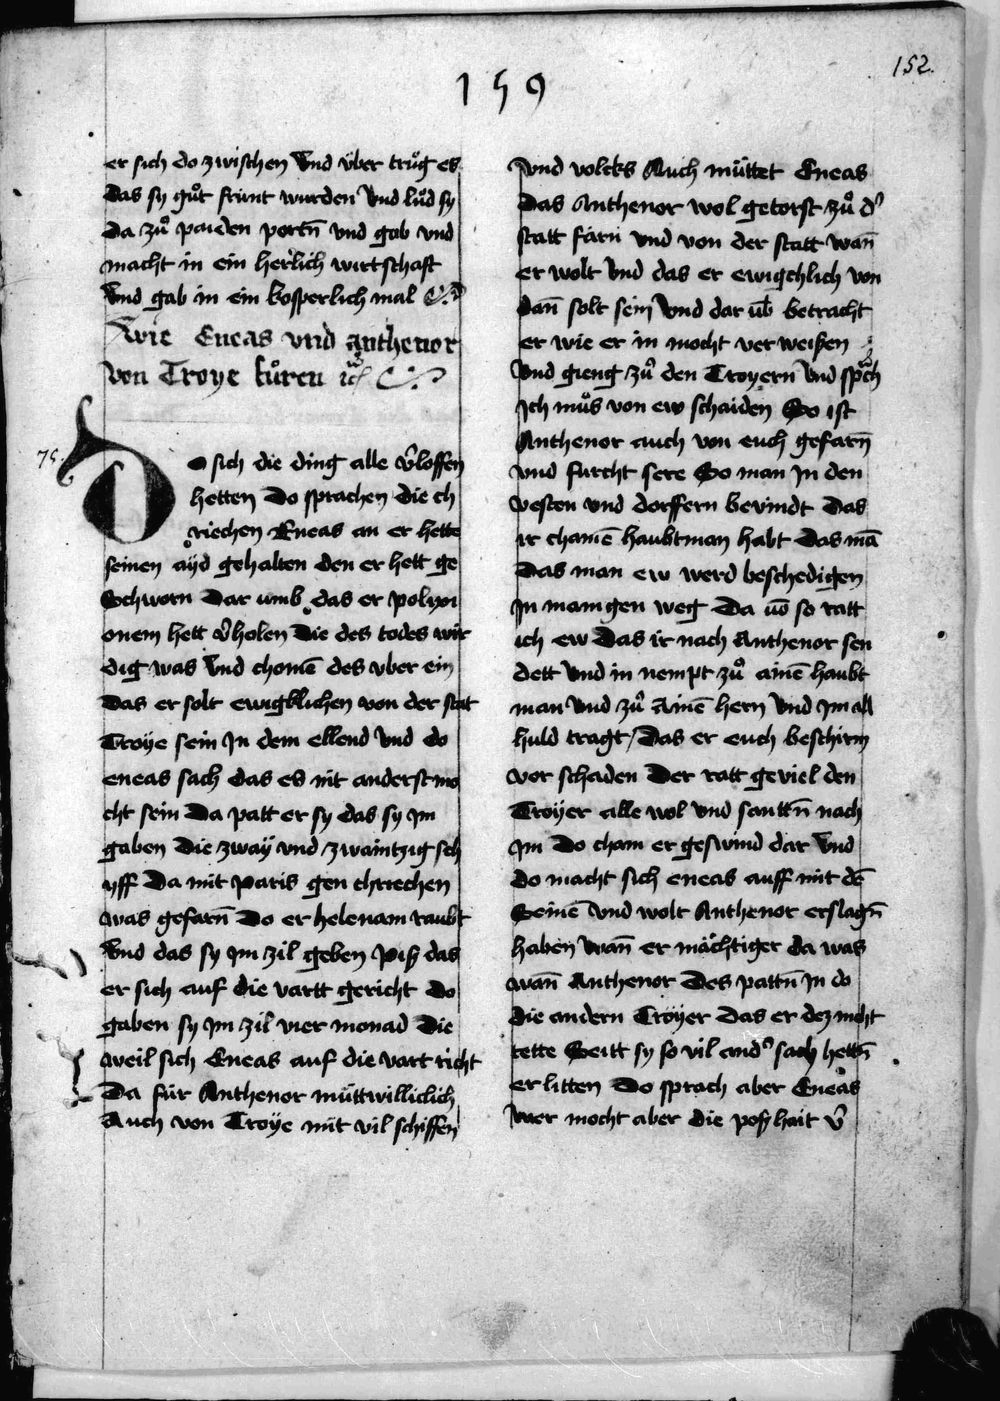 152.
159
er sich do zwischen Vnd v̈ber trůg es
das sy gůt frünt wurden Vnd lůd sy
da zů paiden portn̄ vnd gab vnd
macht in ein herlich wirtschaft
Vnd gab in ein kosperlich mal
Wie Eneas vnd anthenor
von Troye fůren
75.
Do sich die ding alle v̄loffen
hetten Do sprachen die ch
riechen Eneas an er hette
seinen aÿd gehalten den er hett ge
Schworn Dar umb das er polixi
onem hett v̄holen Die des todes wir
dig was Vnd chomē des vber ein
das er solt ewigklichen von der stat
Troÿe sein Jn dem ellend Vnd do
eneas sach das es nit anderst mo
cht sein Da patt er sy das sy Jm
gaben Die zwaÿ vnd zwaintzig sch
yff Da mit Paris gen chriechen
was gefarn̄ Do er helenam raubt
Vnd das sy Jm zil geben Piß das
er sich auf die vartt gericht do
gaben sy Jm zil vier monad Die
weil sich Eneas auf die vart richt
Da für Anthenor müttwilliclich
Auch von Troÿe mit vil schiffen
vnd volcks Auch müttet Eneas
Das Anthenor wol getorst zů d'
statt farn vnd von der statt wan̄
er wolt Vnd das er ewigchlich von
dan̄ solt sein Vnd dar ūb betracht
er wie er in mocht ver weißen
Vnd gieng zů den Troyern Vnd spͣch
Jch můs von ew schaiden So ist
Anthenor auch von euch gefarn̄
vnd furcht sere So man Jn den
vesten vnd dorffern bevindt Das
ir chainē haubtman habt Das mā
Das man ew werd beschedigen
Jn manigen weg Da vō so ratt
ich ew Das ir nach Anthenor sen
dett Vnd in nempt zů ainē haubt
man Vnd zů Ainē hern Vnd Jm all
huld tragt / Das er euch beschirm
vor schaden Der ratt geviel den
Troÿer alle wol vnd santtn̄ nach
Jm Do cham er geswind dar Vnd
do macht sich eneas auff mit dē
Seinē Vnd wolt Anthenor erslagn̄
haben wan̄ er mächtiger da was
wan̄ Anthenor Des pattn̄ Jn do
die andern Troÿer Das er dez nicht
tette Seitt sy so vil and' sach hettn̄
er litten Do sprach aber Eneas
Wer mocht aber die poßhait v̄